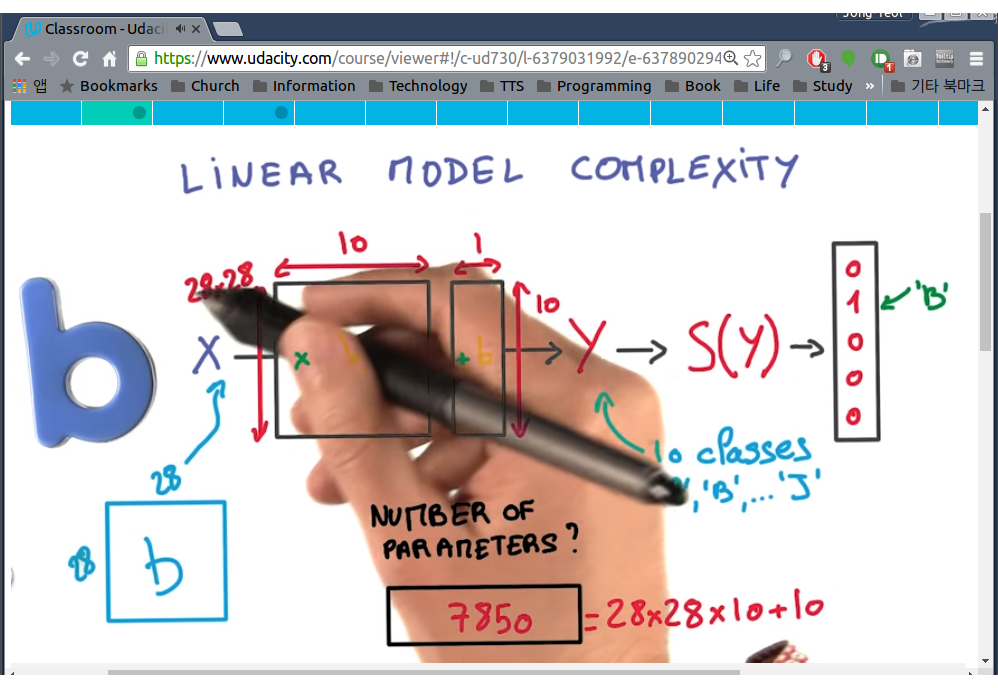 Classroom - Udaci
https://www.udacity.com/course/viewer#!/c-ud730/l-6379031992/e-637890294
3
1
앱 Bookmarks Church Information Technology TTS Programming Book Life Study » 기타 북마크
LINEAR MODEL COMPLEXITY
b
10
1
28×28
X
x
+ b
10
Y
S(Y)
0
1
0
0
0
'B'
28
28
b
10 classes
'B', ... 'J'
NUMBER OF
PARAMETERS?
7850 = 28x28x10+10